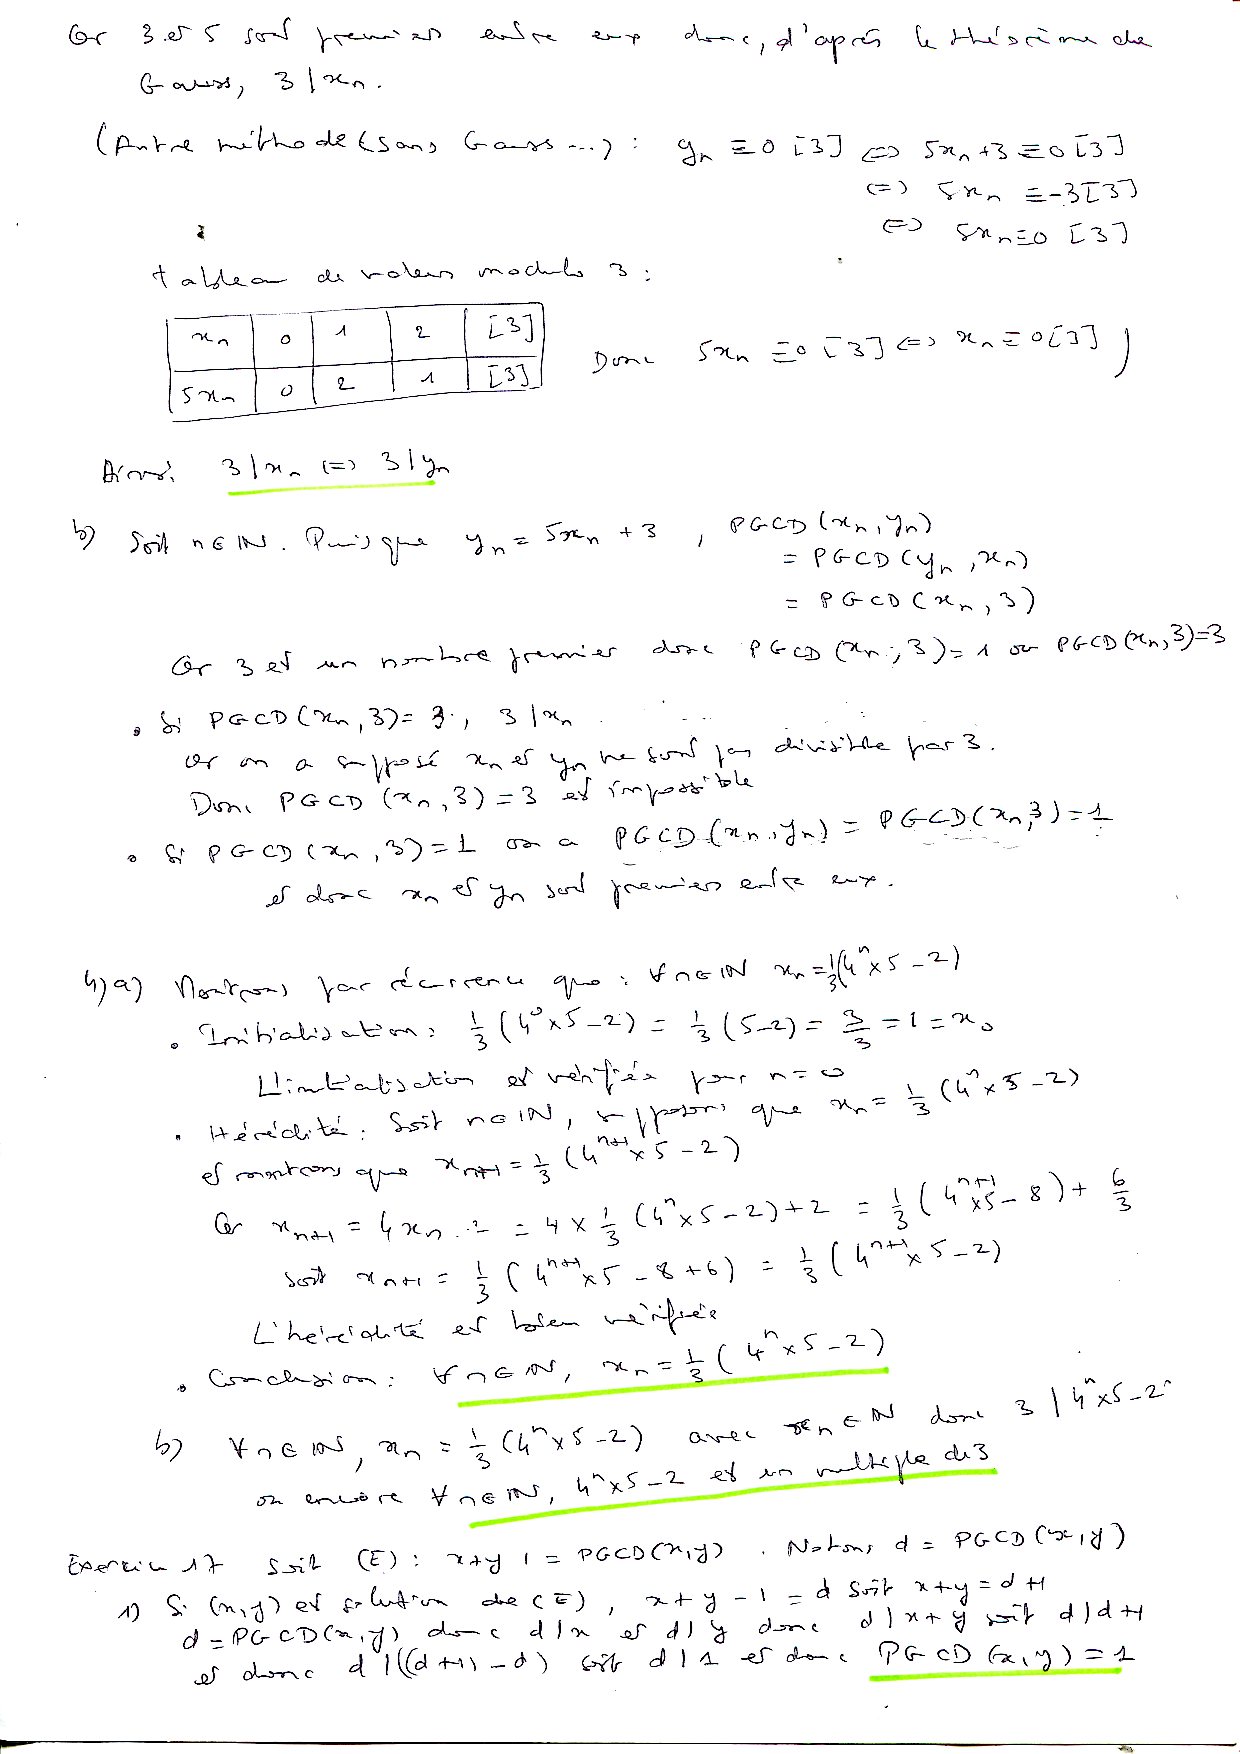 Or 3 et 5 sont premiers entre eux donc, d'après le théorème de
Gauss, 3 | xn.
(Autre méthode (sans Gauss ...) : yn ≡ 0 [3] <=> 5xn + 3 ≡ 0 [3]
<=> 5xn ≡ -3 [3]
<=> 5xn ≡ 0 [3]
tableau de valeurs modulo 3 :
xn 0 1 2 [3]
5xn 0 2 1 [3]
Donc 5xn ≡ 0 [3] <=> xn ≡ 0 [3] )
Ainsi 3 | xn <=> 3 | yn
b) Soit n ∈ IN. Puisque yn = 5xn + 3, PGCD(xn, yn)
= PGCD(yn, xn)
= PGCD(xn, 3)
Or 3 est un nombre premier donc PGCD(xn, 3) = 1 ou PGCD(xn, 3) = 3
• Si PGCD(xn, 3) = 3, 3 | xn
Or on a supposé xn et yn ne sont pas divisible par 3.
Donc PGCD(xn, 3) = 3 est impossible
• Si PGCD(xn, 3) = 1 on a PGCD(xn, yn) = PGCD(xn, 3) = 1
et donc xn et yn sont premiers entre eux.
4) a) Montrons par récurrence que : ∀ n ∈ IN xn = 1/3 (4^n × 5 - 2)
• Initialisation : 1/3 (4^0 × 5 - 2) = 1/3 (5 - 2) = 3/3 = 1 = x0
L'initialisation est vérifiée pour n = 0
• Hérédité : Soit n ∈ IN, supposons que xn = 1/3 (4^n × 5 - 2)
et montrons que xn+1 = 1/3 (4^n+1 × 5 - 2)
Or xn+1 = 4xn + 2 = 4 × 1/3 (4^n × 5 - 2) + 2 = 1/3 (4^n+1 × 5 - 8) + 6/3
soit xn+1 = 1/3 (4^n+1 × 5 - 8 + 6) = 1/3 (4^n+1 × 5 - 2)
L'hérédité est bien vérifiée
• Conclusion : ∀ n ∈ IN, xn = 1/3 (4^n × 5 - 2)
b) ∀ n ∈ IN, xn = 1/3 (4^n × 5 - 2) avec xn ∈ IN donc 3 | 4^n × 5 - 2
ou encore ∀ n ∈ IN, 4^n × 5 - 2 est un multiple de 3
Exercice 17 Soit (E) : x + y 1 = PGCD(x, y). Notons d = PGCD(x, y)
1) Si (x, y) est solution de (E), x + y - 1 = d soit x + y = d + 1
d = PGCD(x, y) donc d | x et d | y donc d | x + y soit d | d + 1
et donc d | ((d + 1) - d) soit d | 1 et donc PGCD(x, y) = 1